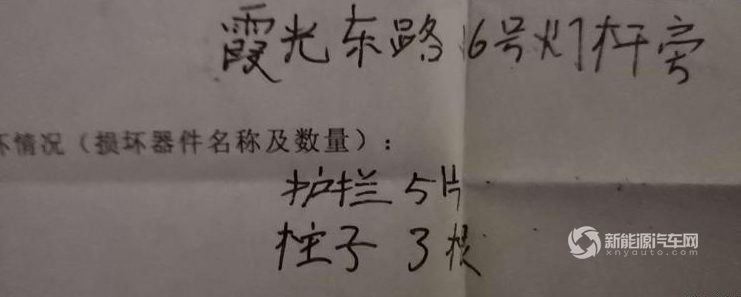 霞光东路16号灯杆旁
坏情况（损坏器件名称及数量）：
护栏 5片
柱子 3根
新能源汽车网
www.xnyauto.com